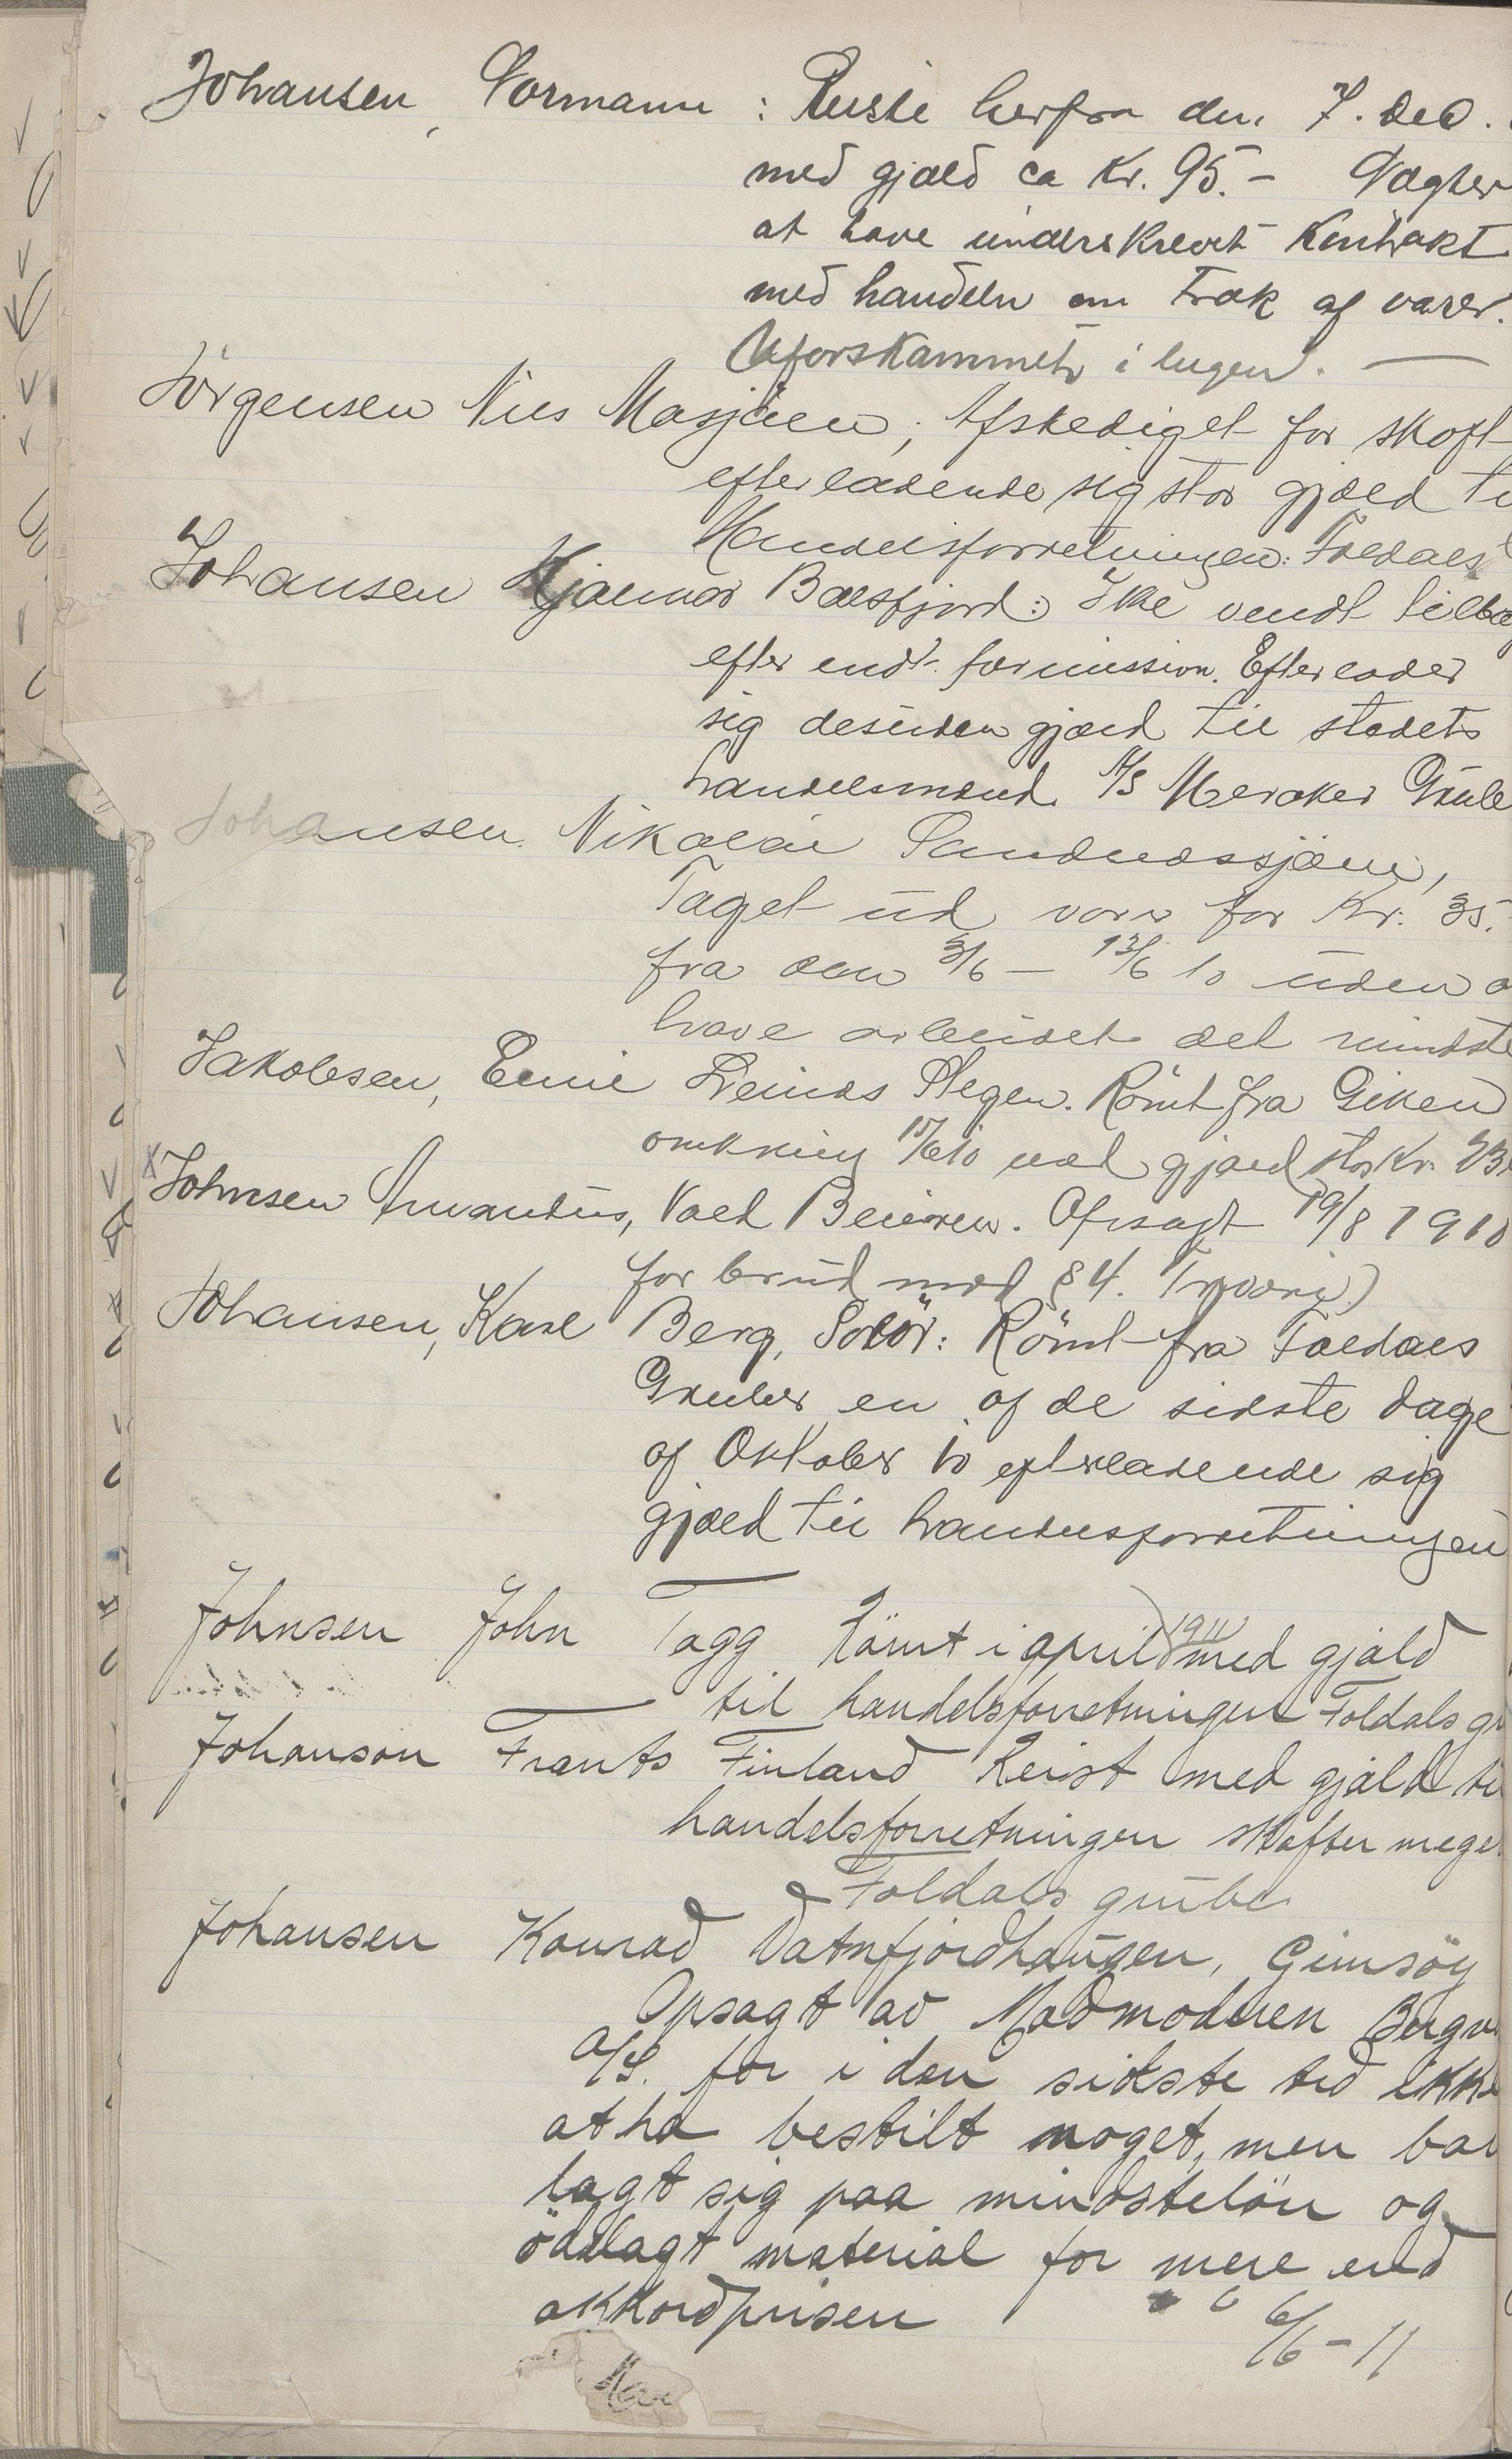 Johansen, Normann : Reiste herfra den 7. des.
med gjæld ca Kr. 95.- Nægter
at have underskrevet Kontrakt
med handeln om Træk af varer.
Uforskammet i lugen. —
Jörgensen Nils Mosjöen; Afskediget for skoft
efterladende sig stor gjæld ti
Handelsforretningen: Foldals
Johansen Hjalmar Balsfjord: Ike vendt tilbag
efter endt permission. Efterlader
sig desuden gjæld til stedets
handelsmænd. A/S Meraker Grube
Johansen Nikolai Sandnessjöen,
Taget ud varer for Kr. 35.
fra den 3/6 – 13/6 10 uden a
have arbeidet det mindste
Jakobsen, Emil Leines Stegen. Römt fra Giken
omkring 15/6 10 med gjæld stor Kr.
x Johnsen Amandus, Vold Beieren. Opsagt 19/8 1910
for brud mod § 4.
Johansen, Karl Berg, Solör: Römt fra Foldals
Gruber en af de sidste dage
af Oktober 10 efterladende sig
gjæld til handelsforretningen
Johnsen John Togg Römt i april 1911 med gjäld
til handelsforretningen Foldals gr
Johanson Frants Finland Reist med gjäld til
handelsforretningen skofter mege
Foldals grube
Johansen Konrad Vatnfjordhaugen, Gimsöy
Opsagt av Madmoderen Bergv
A/S. for i den sidste tid ikke
at ha bestilt noget, men bar
lagt sig paa mindstelön og
ödelagt material for mere end
akkordprisen 6/6 – 11